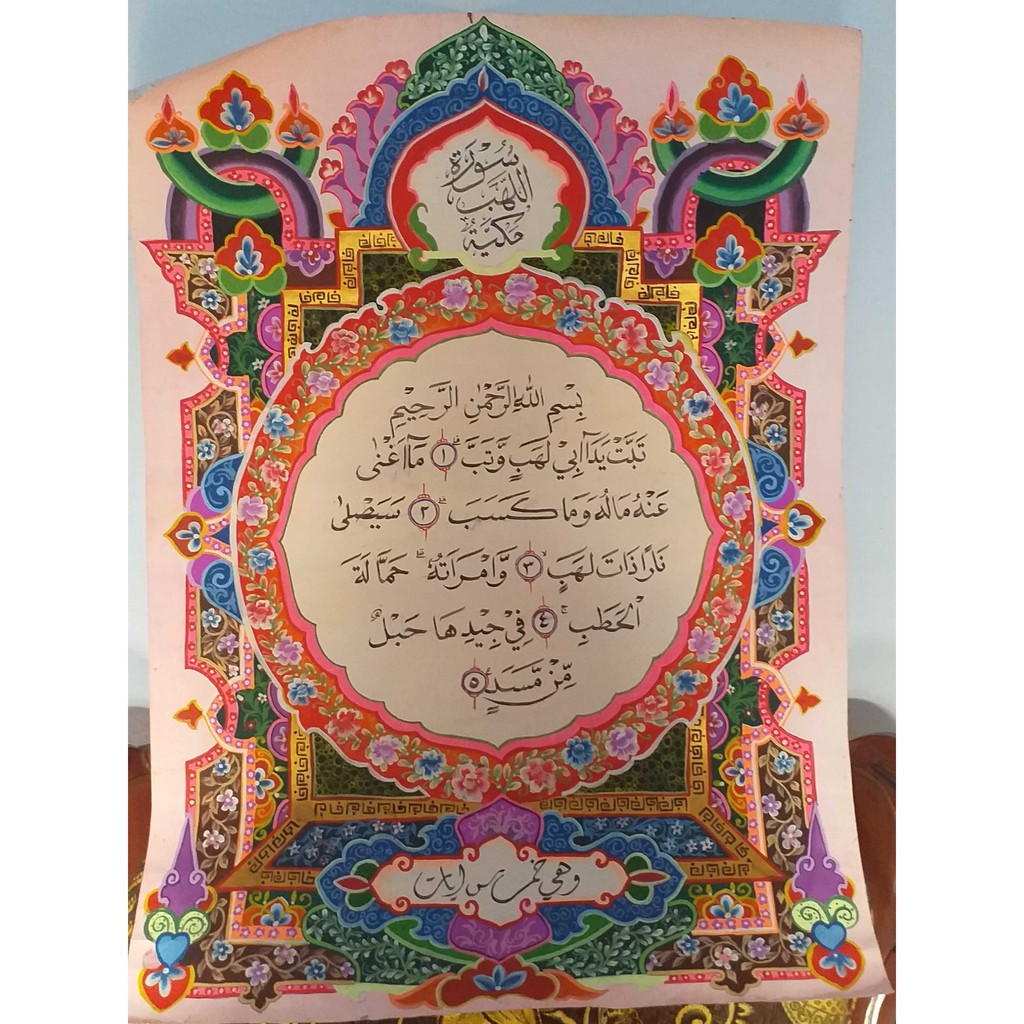 سُوْرَةُ
اللَّهَبِ
مَكِّيَّةٌ
بِسْمِ اللّٰهِ الرَّحْمٰنِ الرَّحِيْمِ
تَبَّتْ يَدَآ اَبِيْ لَهَبٍ وَّتَبَّ ۗ ١ مَآ اَغْنٰى
عَنْهُ مَالُهٗ وَمَا كَسَبَ ۗ ٢ سَيَصْلٰى
نَارًا ذَاتَ لَهَبٍ ۙ ٣ وَّامْرَاَتُهٗ ۗ حَمَّالَةَ
الْحَطَبِ ۚ ٤ فِيْ جِيْدِهَا حَبْلٌ
مِّنْ مَّسَدٍ ٥
وهي خمس ايات